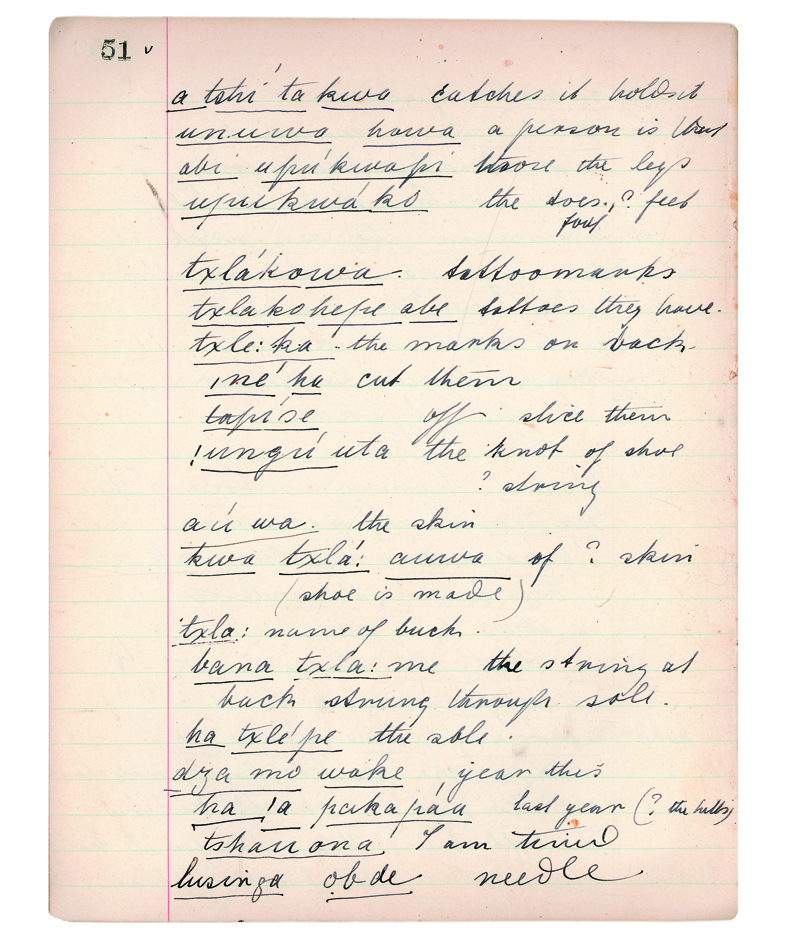 51 v
a tshí ta kwa catches it holds it
unuwa hawa a person is that
abi upúkwapi those the legs
upukwáko the toes, ? feet
foot
txlákowa. tattoomarks
txlako hepe abe tattoes they have.
txle: ka - the marks on back.
ıné ha cut them
tapíse off slice them
!ungú uta the knot of shoe
? string
aú wa. the skin
kwa txlá: auwa of ? skin
(shoe is made)
txla: name of buck.
bana txla: me the string at
back strung through sole.
ha txlé pe the sole.
dza mo wake year this
ha !a pakapáa last year (? the hills)
tshauona I am tired
lusinga obde needle